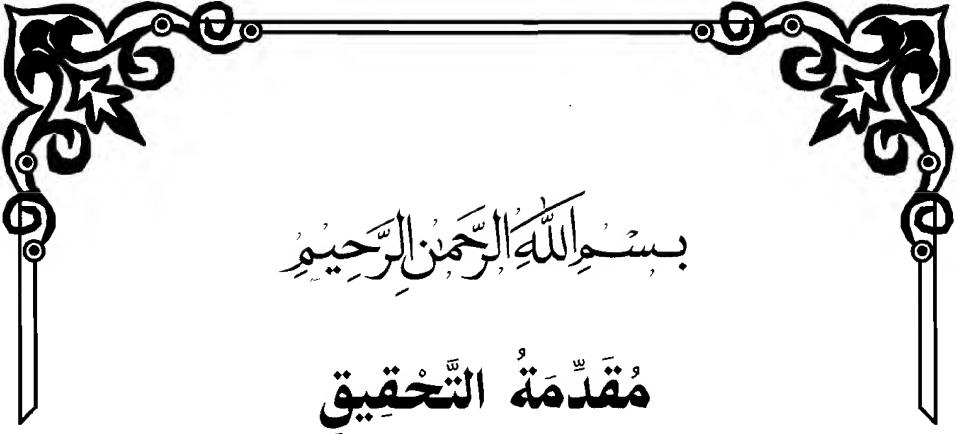 بِسْمِ اللَّهِ الرَّحْمَٰنِ الرَّحِيمِ
مُقَدِّمَةُ التَّحْقِيقِ